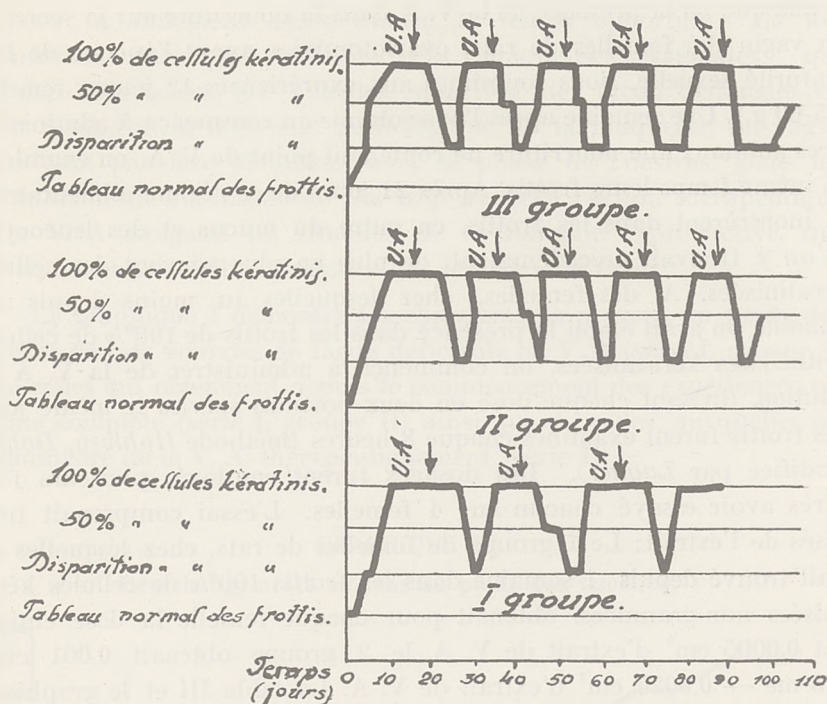 U.A U.A U.A U.A U.A
100% de cellules kératinis.
50% " " "
Disparition " " "
Tableau normal des frottis.
III groupe.
U.A U.A U.A U.A U.A
100% de cellules kératinis.
50% " " "
Disparition " " "
Tableau normal des frottis.
II groupe.
U.A U.A U.A
100% de cellules kératinis.
50% " " "
Disparition " " "
Tableau normal des frottis.
I groupe.
Temps
(jours)
0 10 20 30 40 50 60 70 80 90 100 110